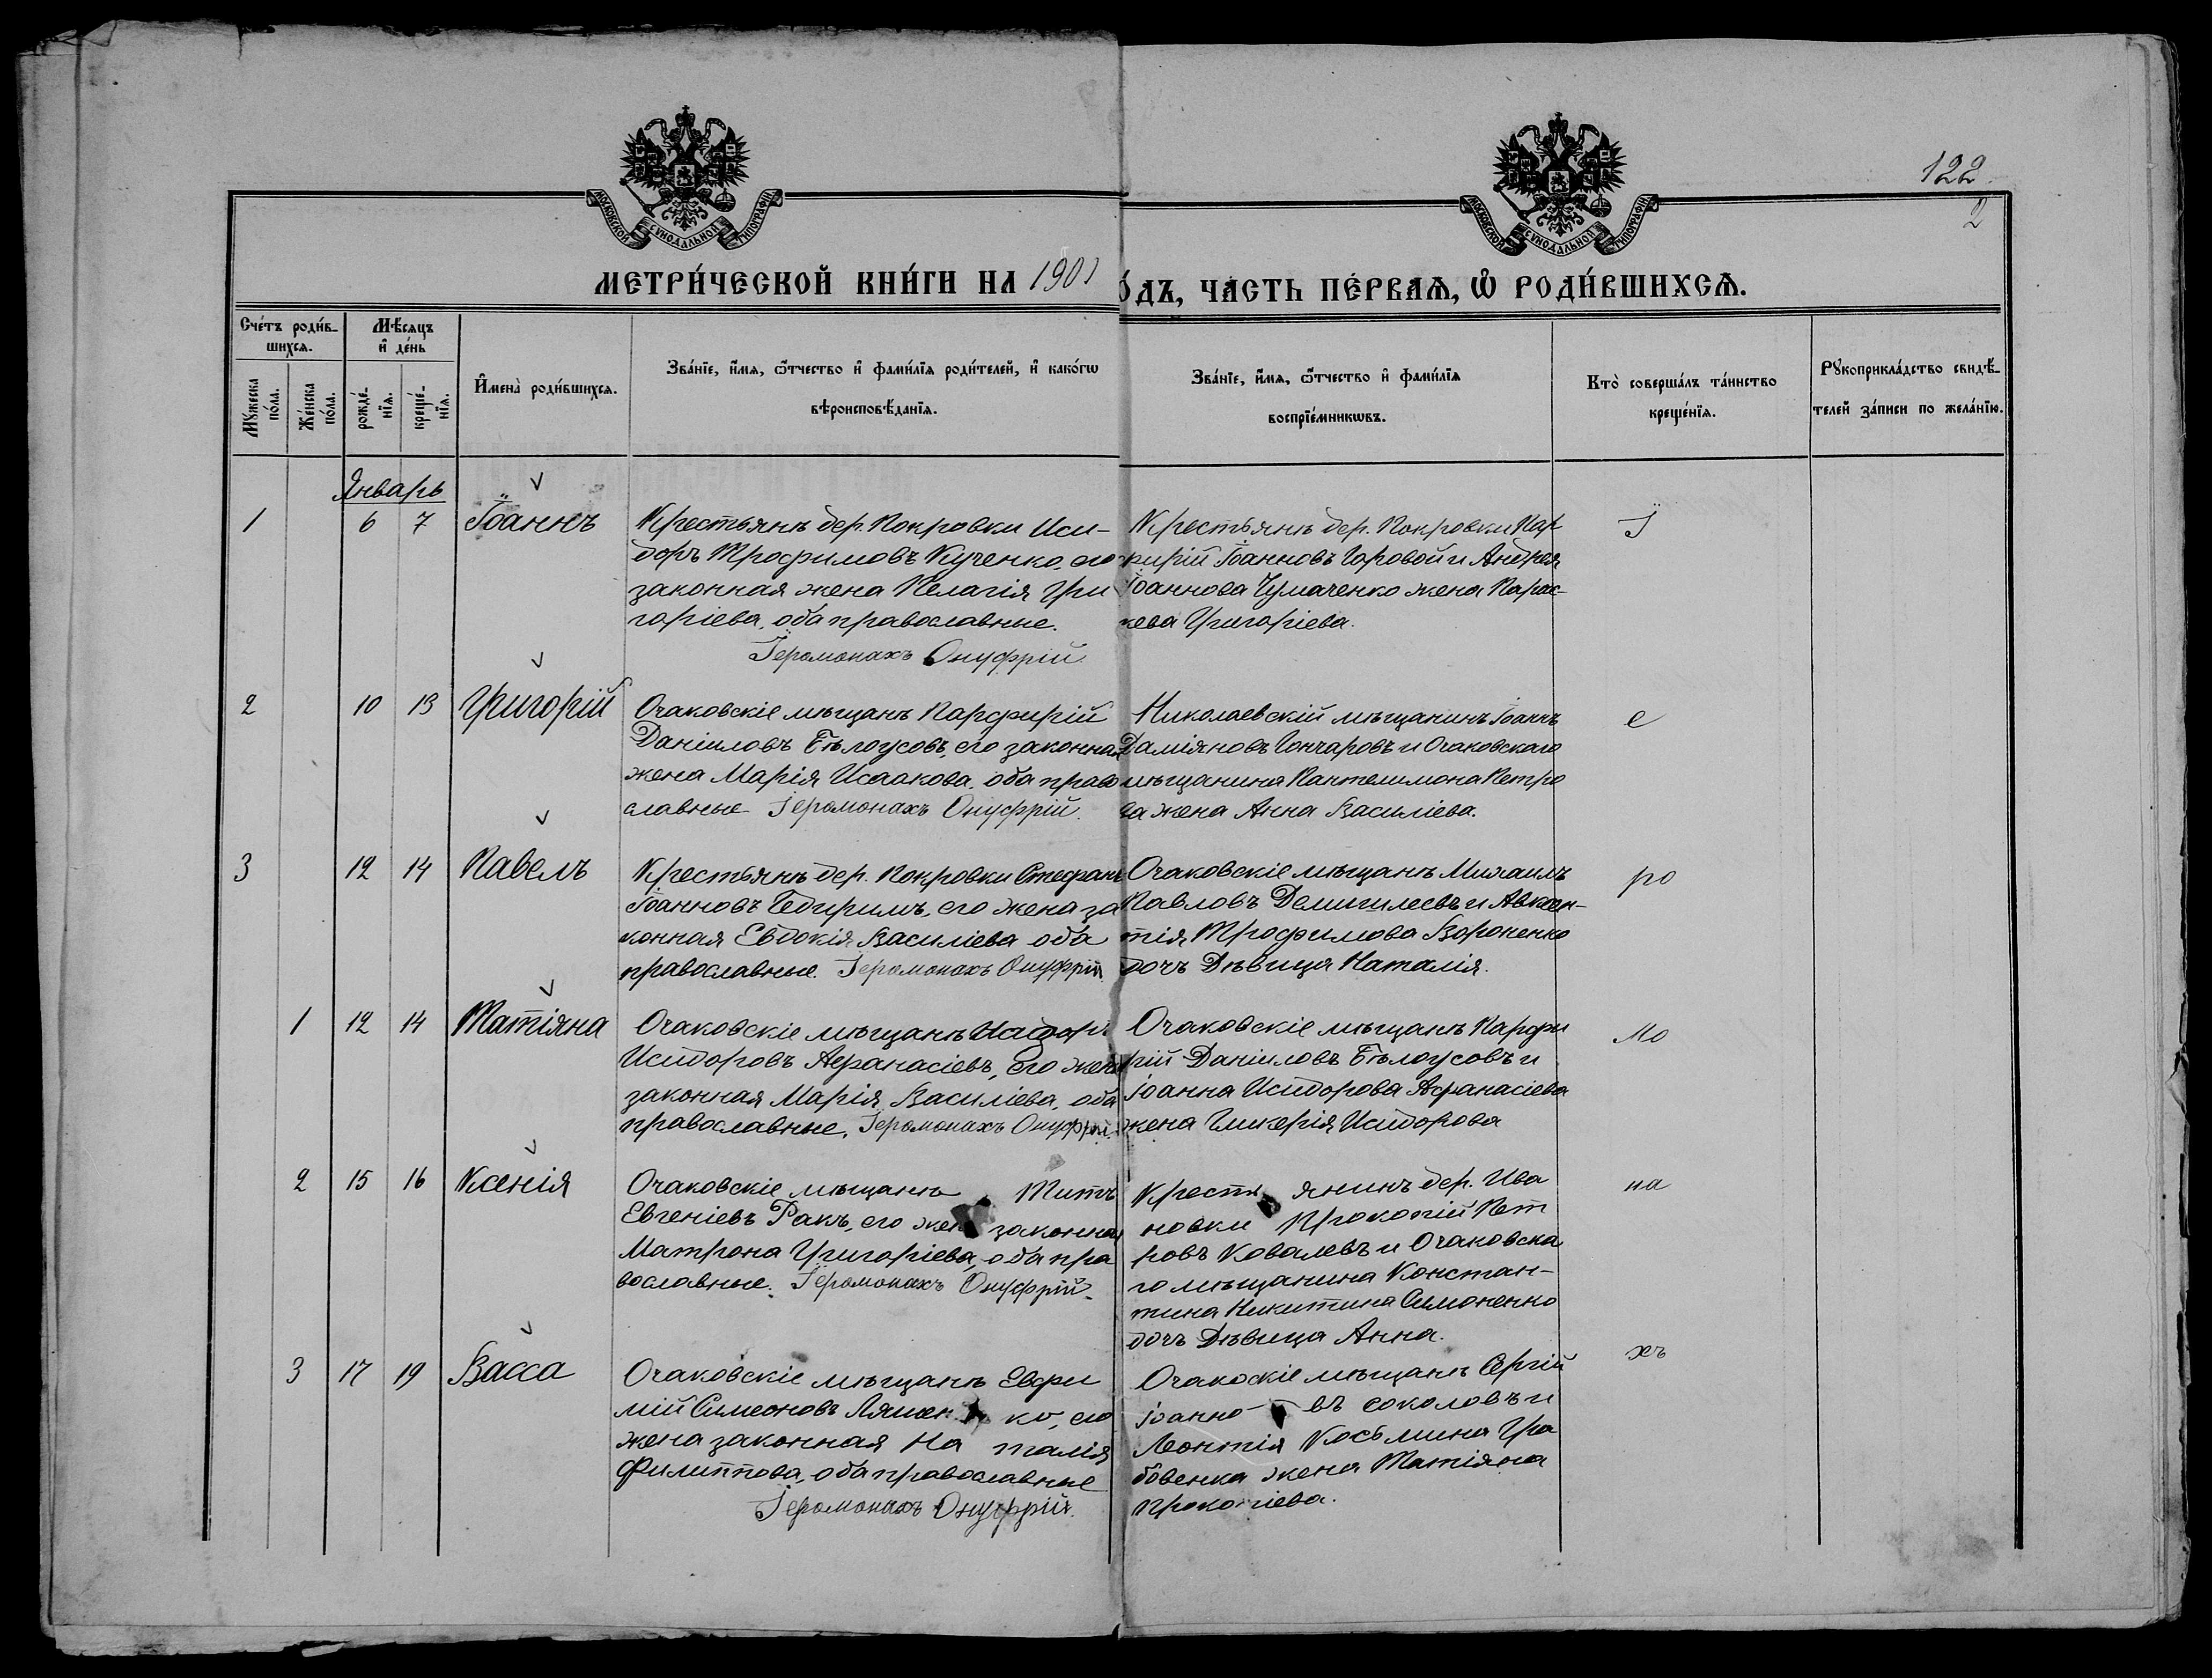 122
2
МОСКОВСКОЙ СѴНОДАЛЬНОЙ ТИПОГРАФІИ
МОСКОВСКОЙ СѴНОДАЛЬНОЙ ТИПОГРАФІИ
МЕТРИ́ЧЕСКОЙ КНИ́ГИ НА 1901
О́ДЪ, ЧАСТЬ ПЕ́РВАѦ, Ѡ҆ РОДИ́ВШИХСѦ.
Сче́тъ роди́в-
шихсѧ.
Мѹ́жеска
по́ла.
Же́нска
по́ла.
Мѣ́сѧцъ
и҆ де́нь
рожде́-
нїѧ.
креще́-
нїѧ.
И҆мена̀ роди́вшихсѧ.
Зва́нїе, и҆́мѧ, ѻ҆́тчество и҆ фами́лїѧ роди́телей, и҆ како́гѡ
вѣроисповѣ́данїѧ.
Зва́нїе, и҆́мѧ, ѻ҆́тчество и҆ фами́лїѧ
воспрїе́мникѡвъ.
Кто̀ соверша́лъ та́инство
креще́нїѧ.
Рѹкоприкла́дство свидѣ́-
телей за́писи по жела́нїю.
Январь
1 6 7 Іоаннъ
Крестьянъ дер. Покровки Иси-
доръ Трофимовъ Кученко, его
законная жена Пелагія Гри
горіева, оба православные.
Іеромонахъ Онуфрій
Крестьянъ дер. Покровки Пар
фирій Іоанновъ Горовой и Андрея
Іоаннова Чумаченко жена Парас-
кева Григоріева.
І
2 10 13 Григорій
Очаковскіе мѣщанъ Парфирій
Даніиловъ Бѣлоусовъ, его законная
жена Марія Исаакова, оба право
славные Іеромонахъ Онуфрій.
Николаевскій мѣщанинъ Іоаннъ
Даміяновъ Гончаровъ и Очаковскаго
мѣщанина Пантелимона Петро
ва жена Анна Василіева.
е
3 12 14 Павелъ
Крестьянъ дер. Покровки Стефанъ
Іоанновъ его жена за
конная Евдокія Василіева оба
православные. Іеромонахъ Онуфрій
Очаковскіе мѣщанъ Михаилъ
Павловъ и Авксен-
тія Трофимова Вороненко
дочъ Дѣвица Наталія.
ро
1 12 14 Татіяна
Очаковскіе мѣщанъ Исидоръ
Исидоровъ Афанасіевъ, его жена
законная Марія Василіева, оба
православные. Іеромонахъ Онуфрій.
Очаковскіе мѣщанъ Парфи
рій Даніиловъ Бѣлоусовъ и
Іоанна Исидорова Афанасіева
жена Гликерія Исидорова
мо
2 15 16 Ксенія
Очаковскіе мѣщанъ Титъ
Евгеніевъ Ракъ, его жен законная
Матрона Григоріева, оба пра
вославные. Іеромонахъ Онуфрій.
Крестьянинъ дер. Ива
новки Прокопій Пет
ровъ Ковалевъ и Очаковска
го мѣщанина Констан-
тина Никитина Симоненко
дочъ Дѣвица Анна.
на
3 17 19 Васса
Очаковскіе мѣщанъ Евфи
мій Симеоновъ Ляшен ко, его
жена законная На талія
Филиппова, оба православные
Іеромонахъ Онуфрій.
Очакоскіе мѣщанъ Сергій
Іоанно- въ Соколовъ и
Леонтія Косьмина Гра
бовенка жена Татіяна
Прокопіева.
хъ